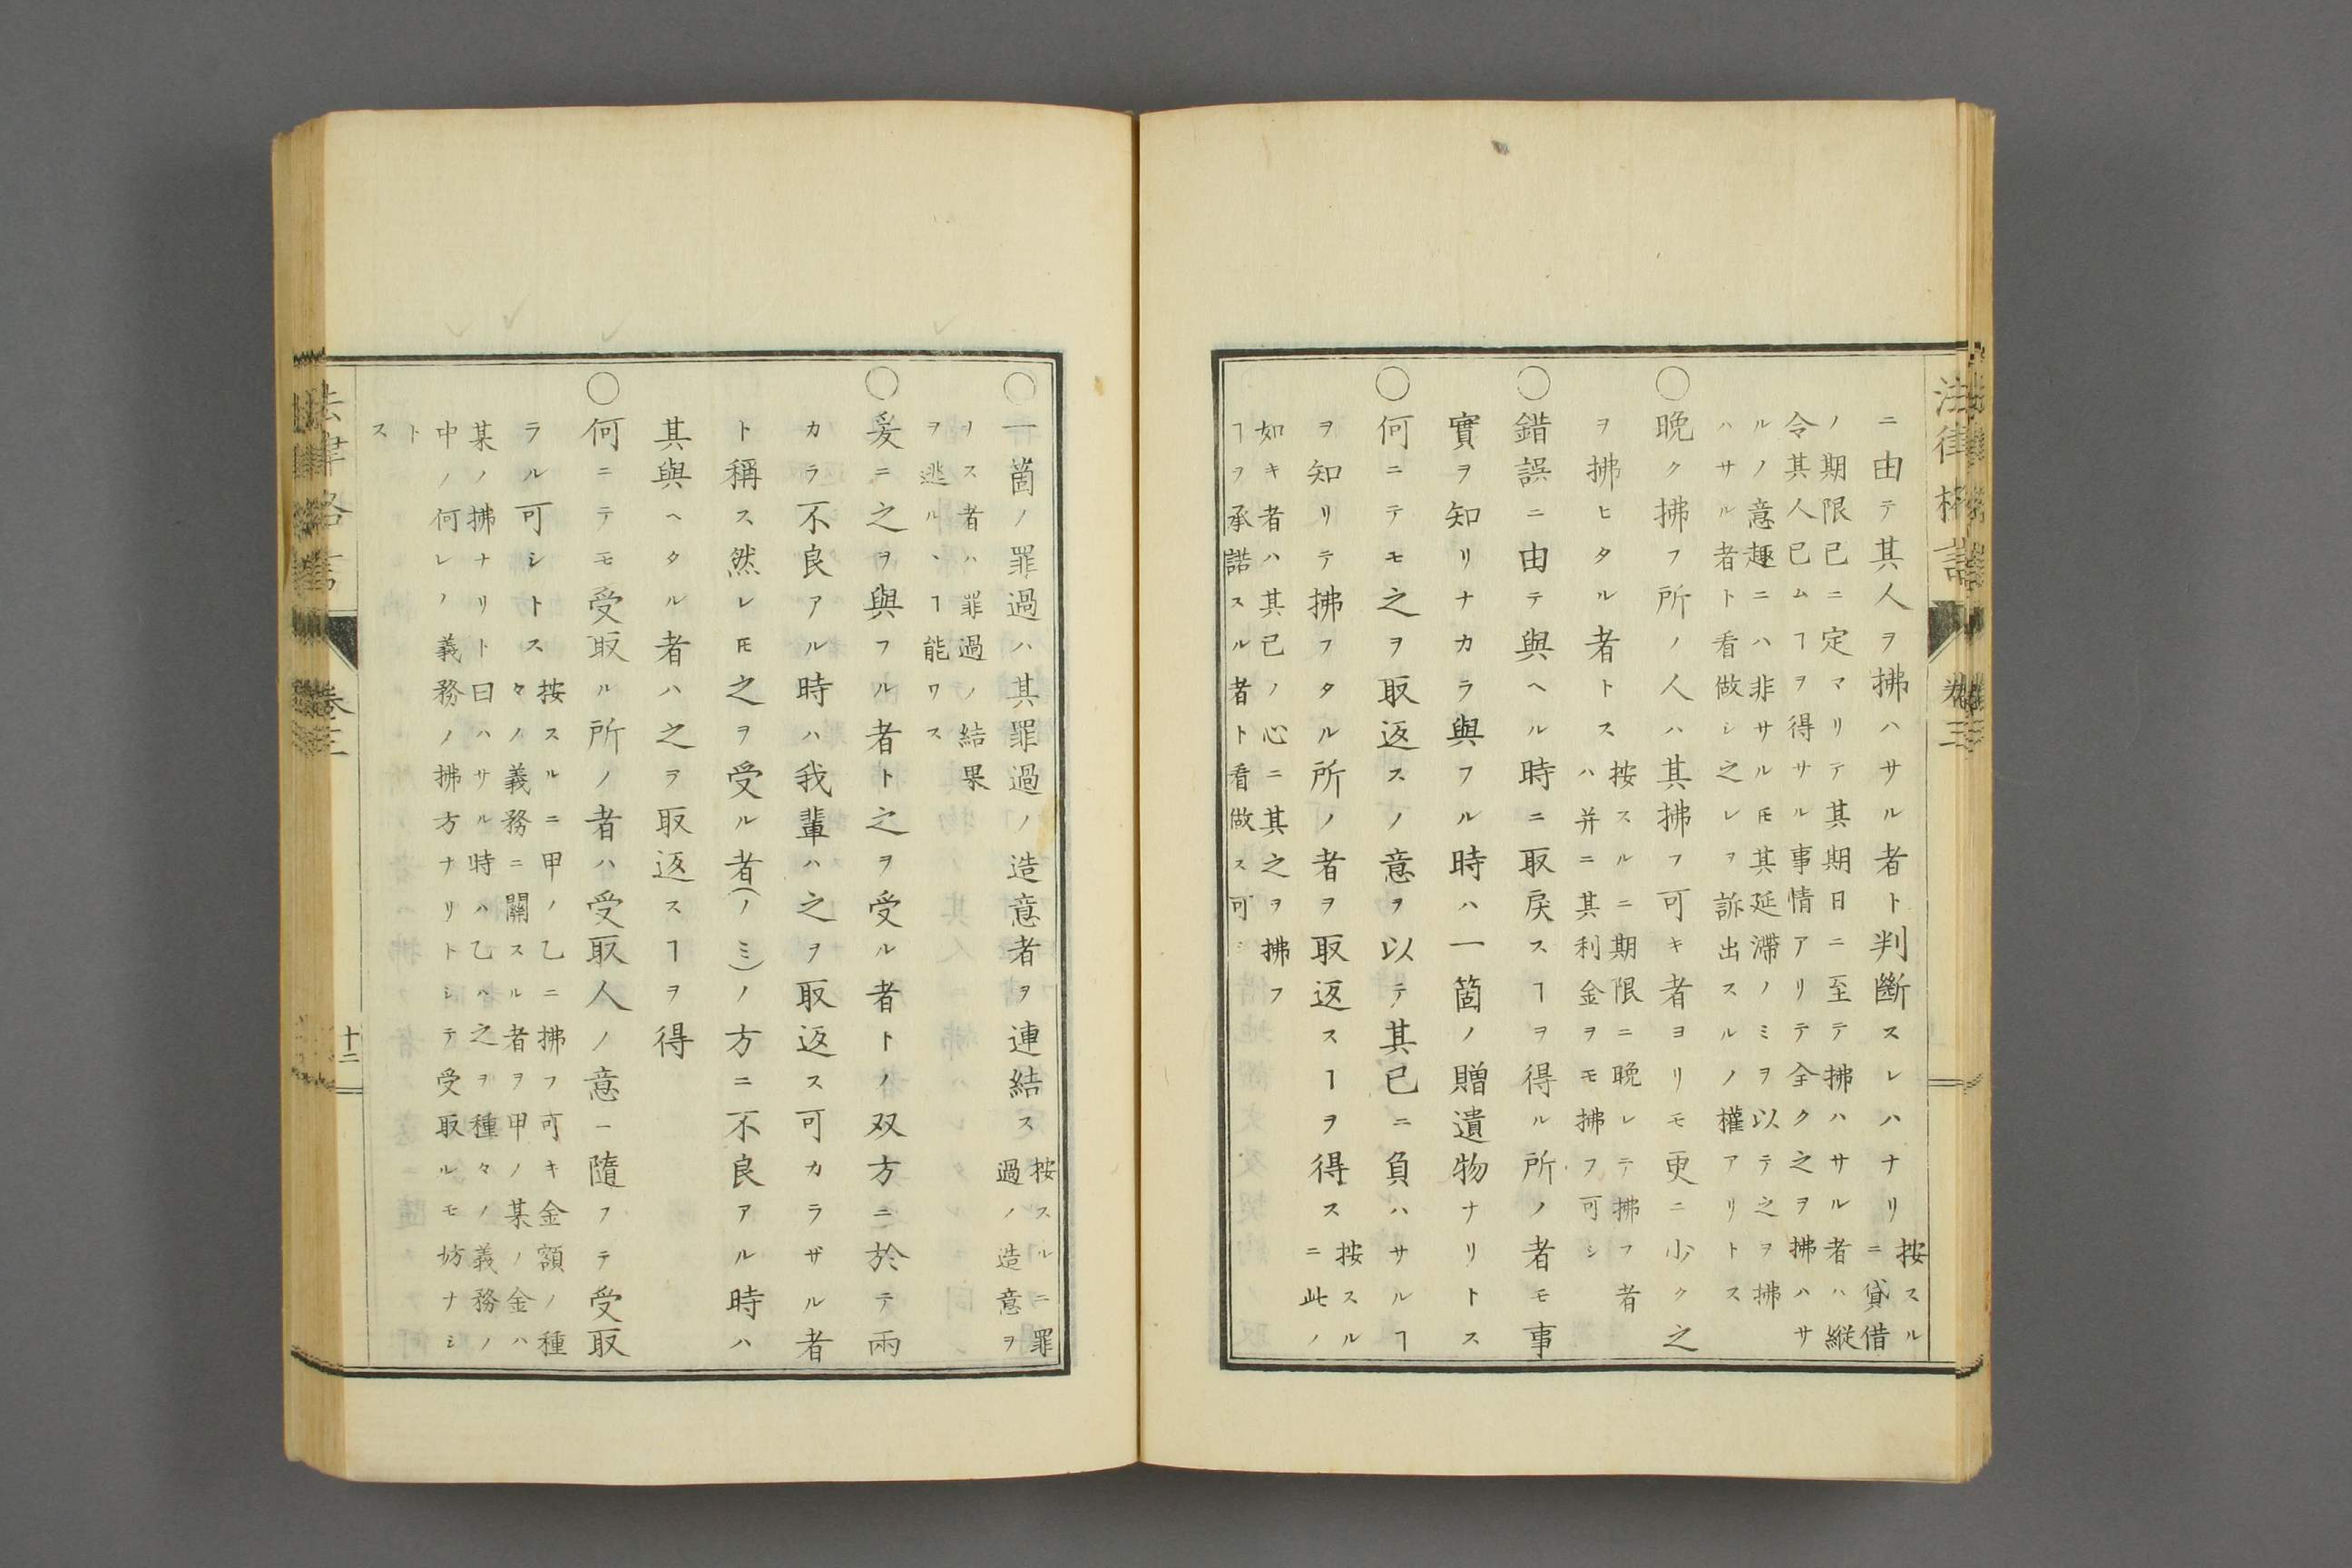 ニ由テ其人ヲ拂ハサル者ト判斷スレハナリ 按スル
ニ貸借
ノ期限已ニ定マリテ其期日ニ至テ拂ハサル者ハ縦
令其人已ムヿヲ得サル事情アリテ全ク之ヲ拂ハサ
ルノ意趣ニハ非サル𪜈其延滯ノミヲ以テ之ヲ拂
ハサル者ト看做シ之レヲ訴出スルノ權アリトス
○晩ク拂フ所ノ人ハ其拂フ可キ者ヨリモ更ニ少ク之
ヲ拂ヒタル者トス 按スルニ期限ニ晩レテ拂フ者
ハ并ニ其利金ヲモ拂フ可シ
○錯誤ニ由テ與ヘル時ニ取戻スヿヲ得ル所ノ者モ事
實ヲ知リナカラ與フル時ハ一箇ノ贈遺物ナリトス
○何ニテモ之ヲ取返スノ意ヲ以テ其已ニ負ハサルヿ
ヲ知リテ拂フタル所ノ者ヲ取返スヿヲ得ス 按スル
ニ此ノ
如キ者ハ其已ノ心ニ其之ヲ拂フ
ヿヲ承諾スル者ト看做ス可シ
法律格言
卷三
○一箇ノ罪過ハ其罪過ノ造意者ヲ連結ス 按スルニ罪
過ノ造意ヲ
リス者ハ罪過ノ結果
ヲ逃ルヽヿ能ワス
○爰ニ之ヲ與フル者ト之ヲ受ル者トノ双方ニ於テ兩
カラ不良アル時ハ我輩ハ之ヲ取返ス可カラザル者
ト稱ス然レ𪜈之ヲ受ル者(ノミ)ノ方ニ不良アル時ハ
其與ヘタル者ハ之ヲ取返スヿヲ得
○何ニテモ受取ル所ノ者ハ受取人ノ意ニ隨フテ受取
ラル可シトス 按スルニ甲ノ乙ニ拂フ可キ金額ノ種
々ノ義務ニ關スル者ヲ甲ノ某ノ金ハ
某ノ拂ナリト曰ハサル時ハ乙ハ之ヲ種々ノ義務ノ
中ノ何レノ義務ノ拂方ナリトシテ受取ルモ妨ナシ
ト
ス
法律格言
卷三
十二